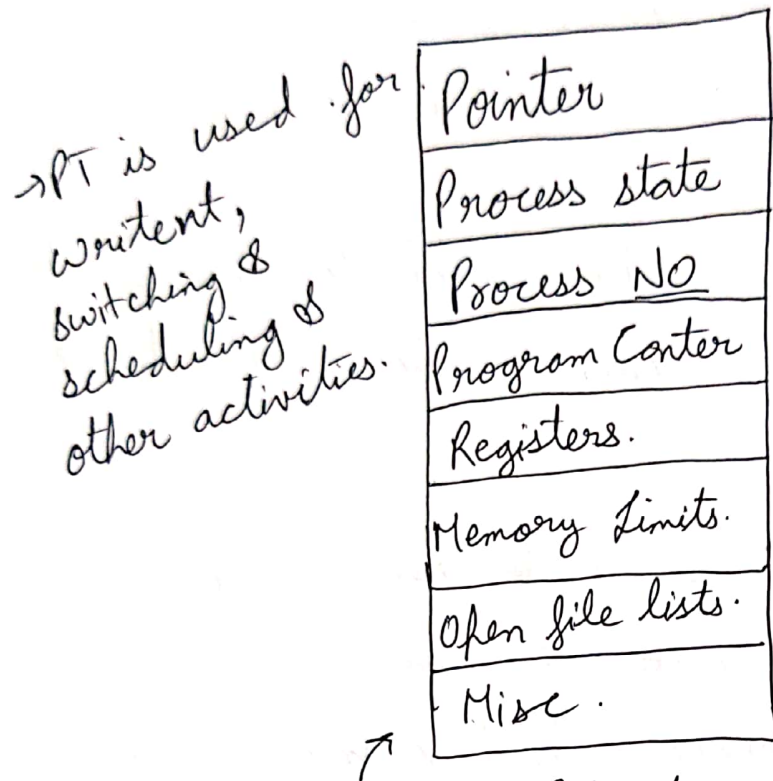 →PT is used for
writent,
switching &
scheduling &
other activities.
Pointer
Process state
Process NO
Program Conter
Registers.
Memory Limits.
Open file lists.
Misc.